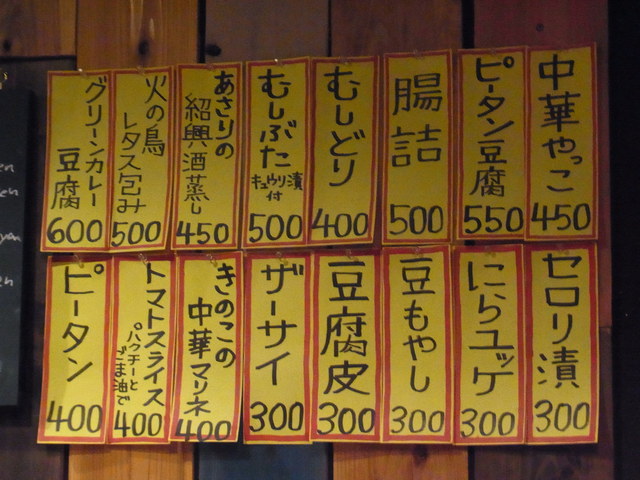 中華やっこ
450
ピータン豆腐
550
腸詰
500
むしどり
400
むしぶた
キュウリ漬
付
500
あさりの
紹興酒蒸し
450
火の鳥
レタス包み
500
グリーンカレー
豆腐
600
セロリ漬
300
にらユッケ
300
豆もやし
300
豆腐皮
300
ザーサイ
300
きのこの
中華マリネ
400
トマトスライス
パクチーと
ごま油で
400
ピータン
400